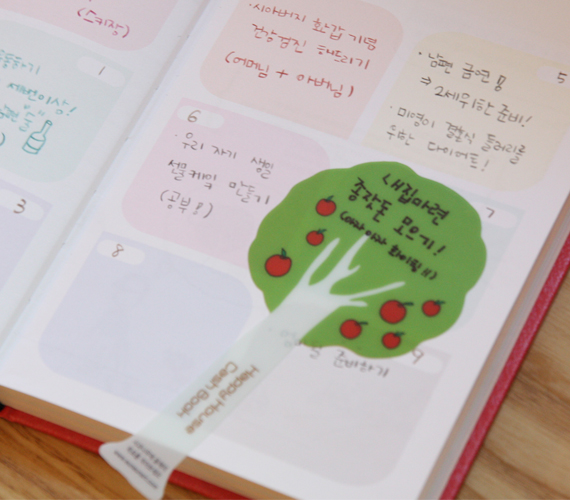 (스키장)
1
3
·시아버지 환갑 기념
건강검진 해드리기
(어머님 + 아버님)
5
·남편 금연!!
⇒ 2세위한준비!
·미영이 결혼식 들러리를
위한 다이어트!
6
·우리 자기 생일
선물케잌 만들기
(공부!)
7
내집마련
종잣돈 모으기!
(아자아자 화이팅!!)
8
9
준비하기
Happy House
Cash Book